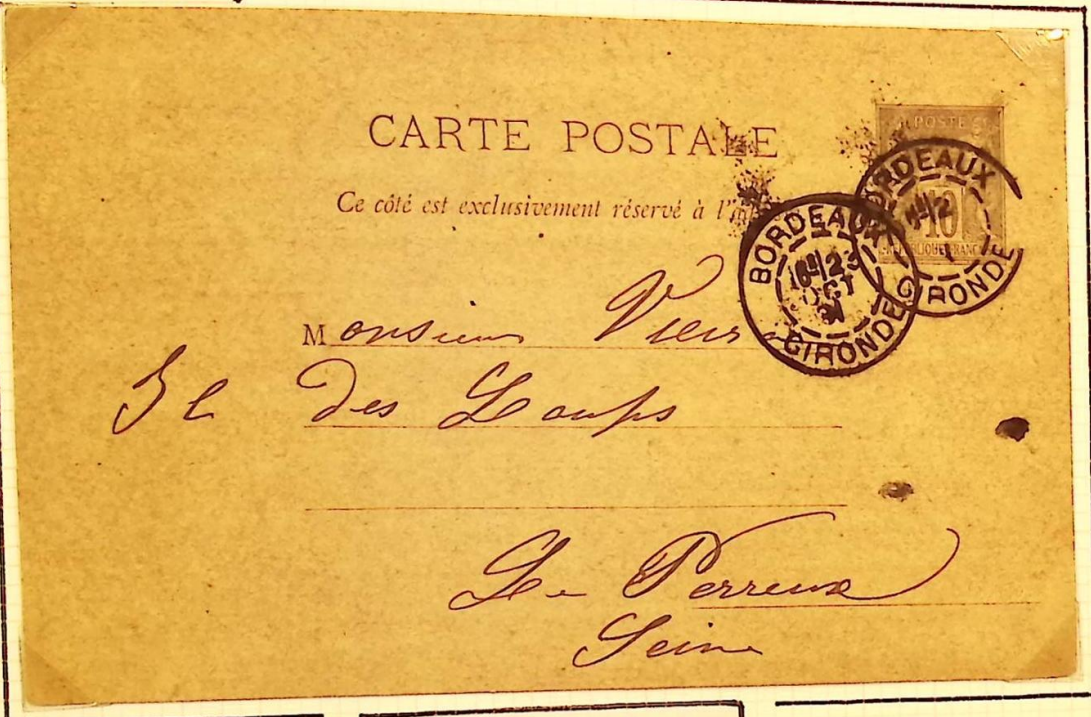 CARTE POSTALE
Ce côté est exclusivement réservé à
POSTE
10
REPUBLIQUE FRANC
BORDEAUX
GIRONDE
BORDEAUX
23
OCT
91
GIRONDE
Monsieur
Ile des Loups
Le Perreux
Seine